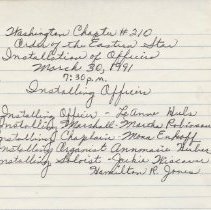 Washington Chapter #210
Order of the Eastern Star
Installation of Officers
March 30, 1991
7:30 p.m.
Installing Officers
Installing Officer - LeAnne
Installing Marshall - Martha Robinson
Installing Chaplain - Mona
Installing Organist Annmarie
Installing Soloist - Jackie
Hamilton R. Jones